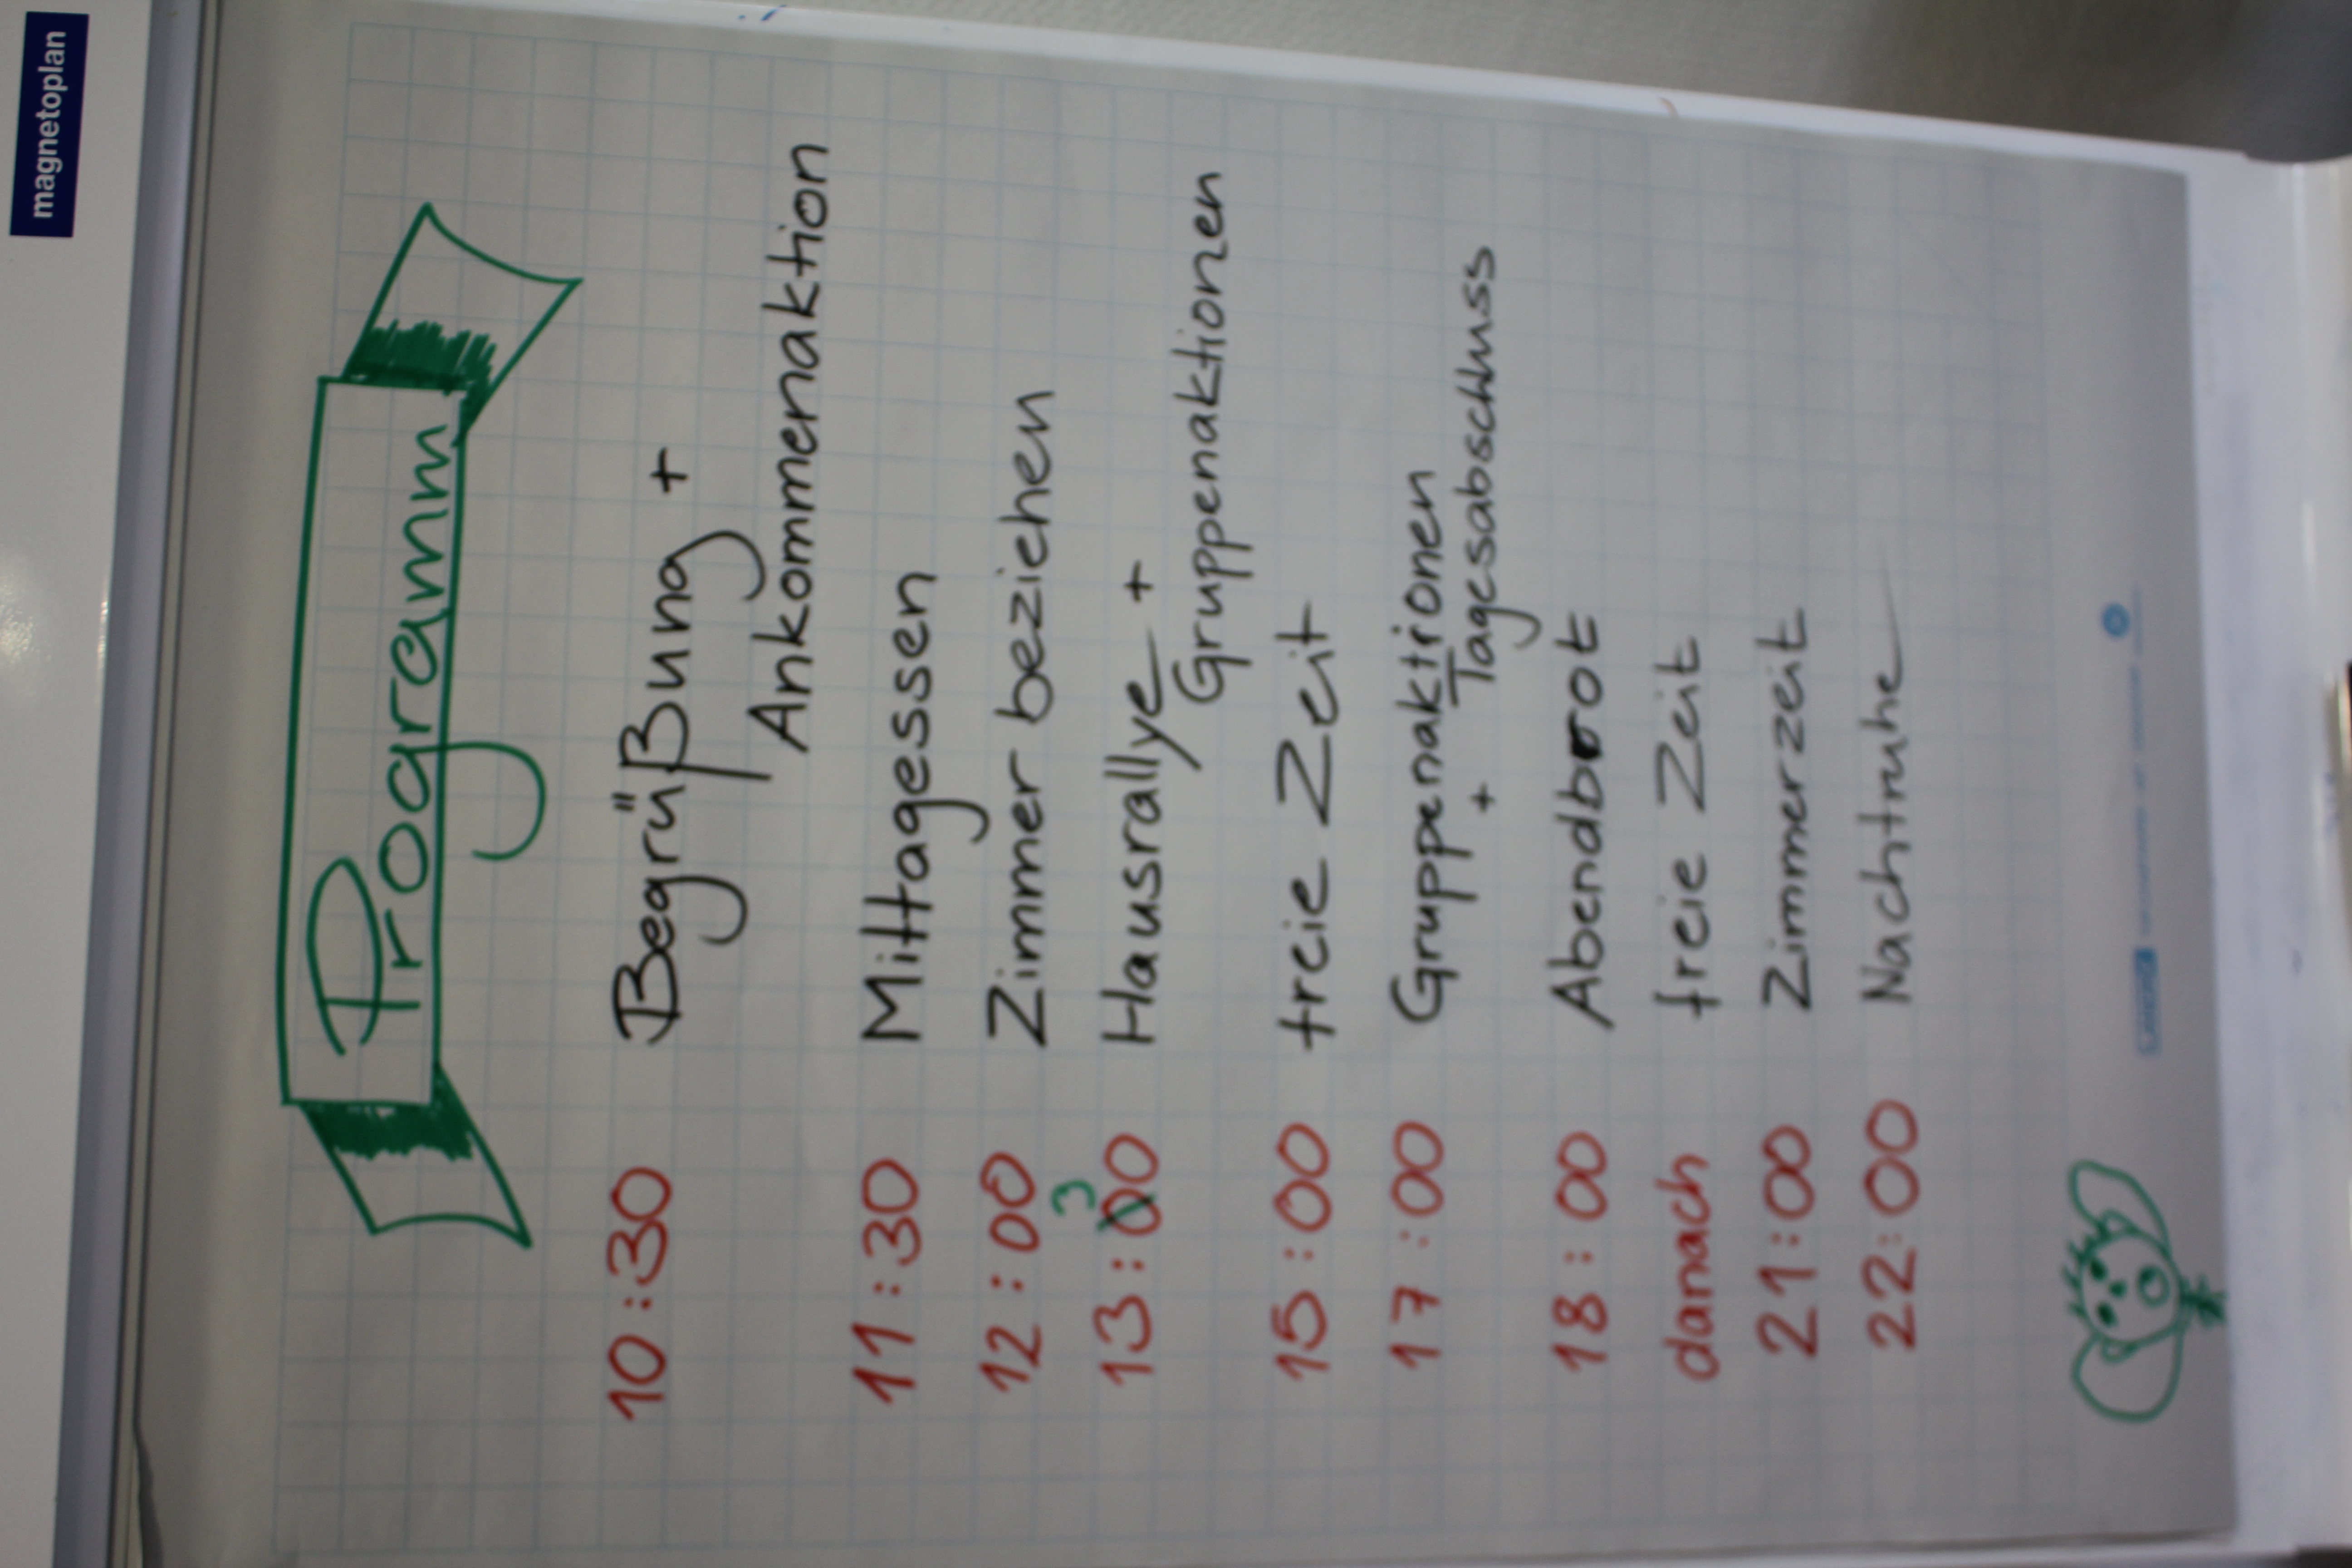 magnetoplan
Programm
10:30 Begrüßung +
Ankommenaktion
11:30 Mittagessen
12:00 Zimmer beziehen
3
13:00 Hausrallye +
Gruppenaktionen
15:00 freie Zeit
17:00 Gruppenaktionen
+ Tagesabschluss
18:00 Abendbrot
danach freie Zeit
21:00 Zimmerzeit
22:00 Nachtruhe